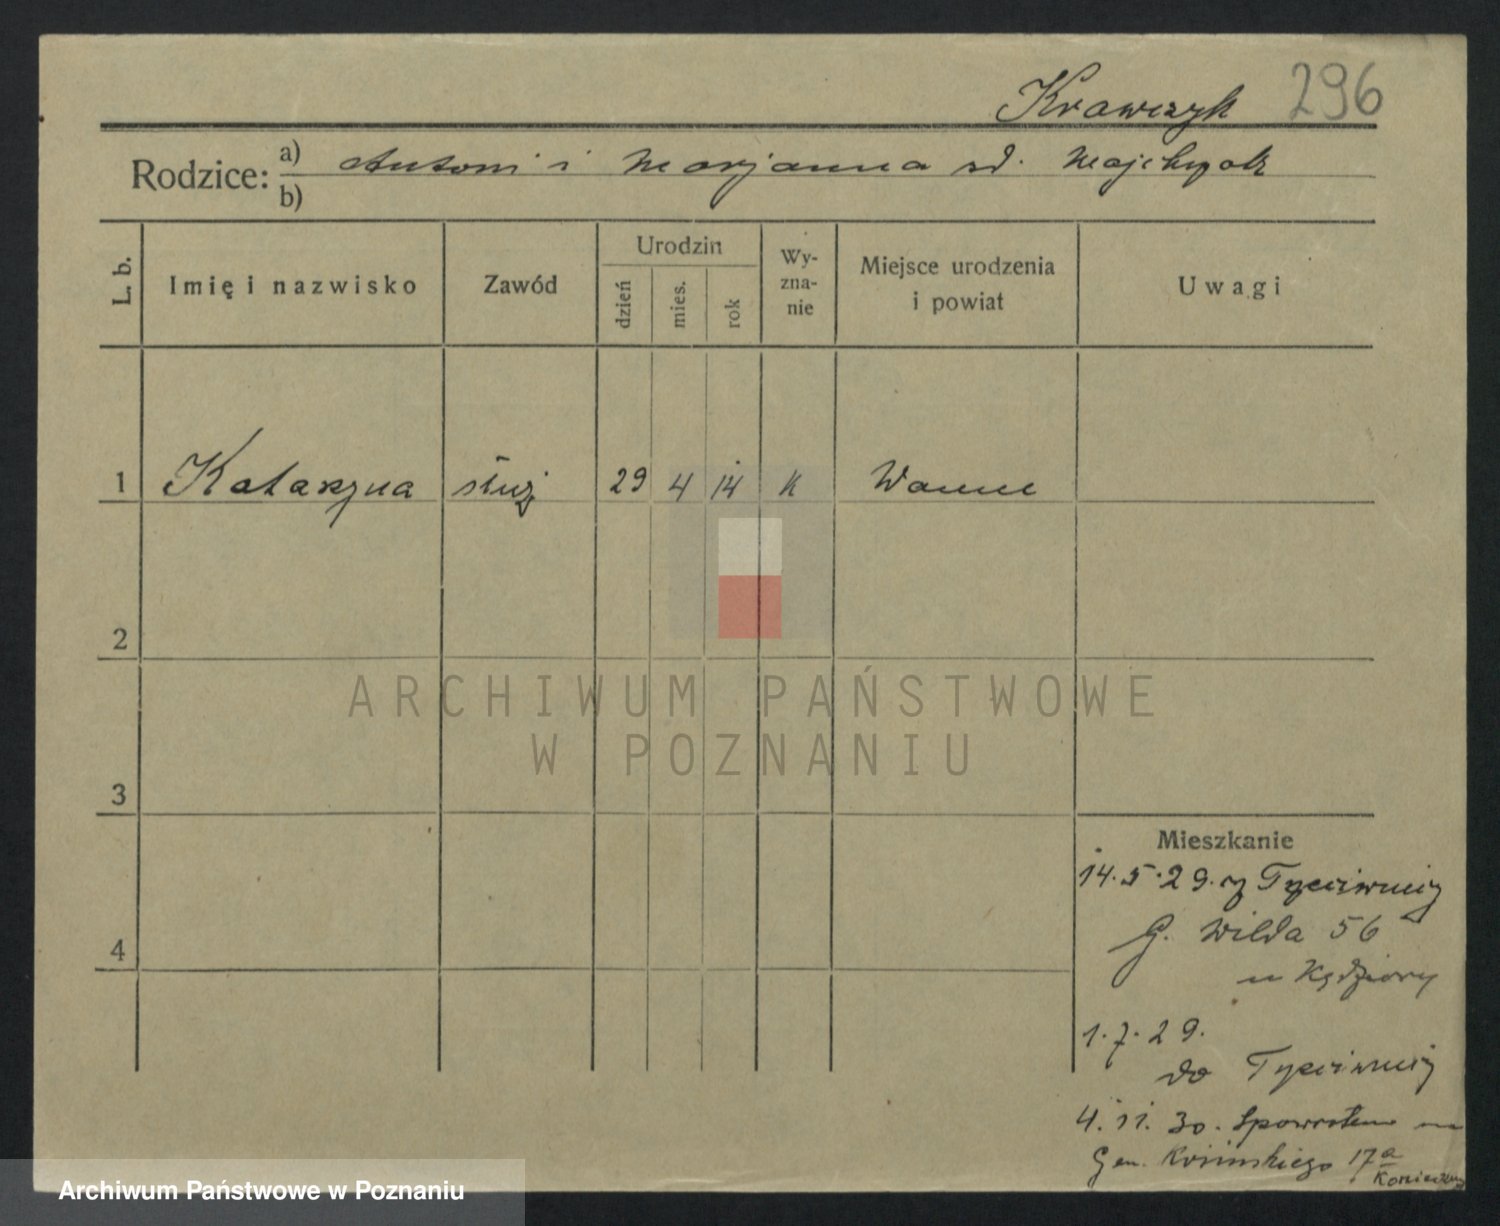 Krawczyk 296
Rodzice: a) Antoni i Marjanna zd. Majchrzak
b)
L. b.
Imię i nazwisko
Zawód
Urodzin
dzień
mies.
rok
Wy-
zna-
nie
Miejsce urodzenia
i powiat
Uwagi
1 Katarzyna służ 29 4 14 k Wanne
2
3
4
Mieszkanie
14.5.29. z
G. Wilda 56
u Kędziory
1.7.29.
do
4.11.30. Spowrotem
Gen. Kosińskiego 17a
ARCHIWUM PAŃSTWOWE
W POZNANIU
Archiwum Państwowe w Poznaniu